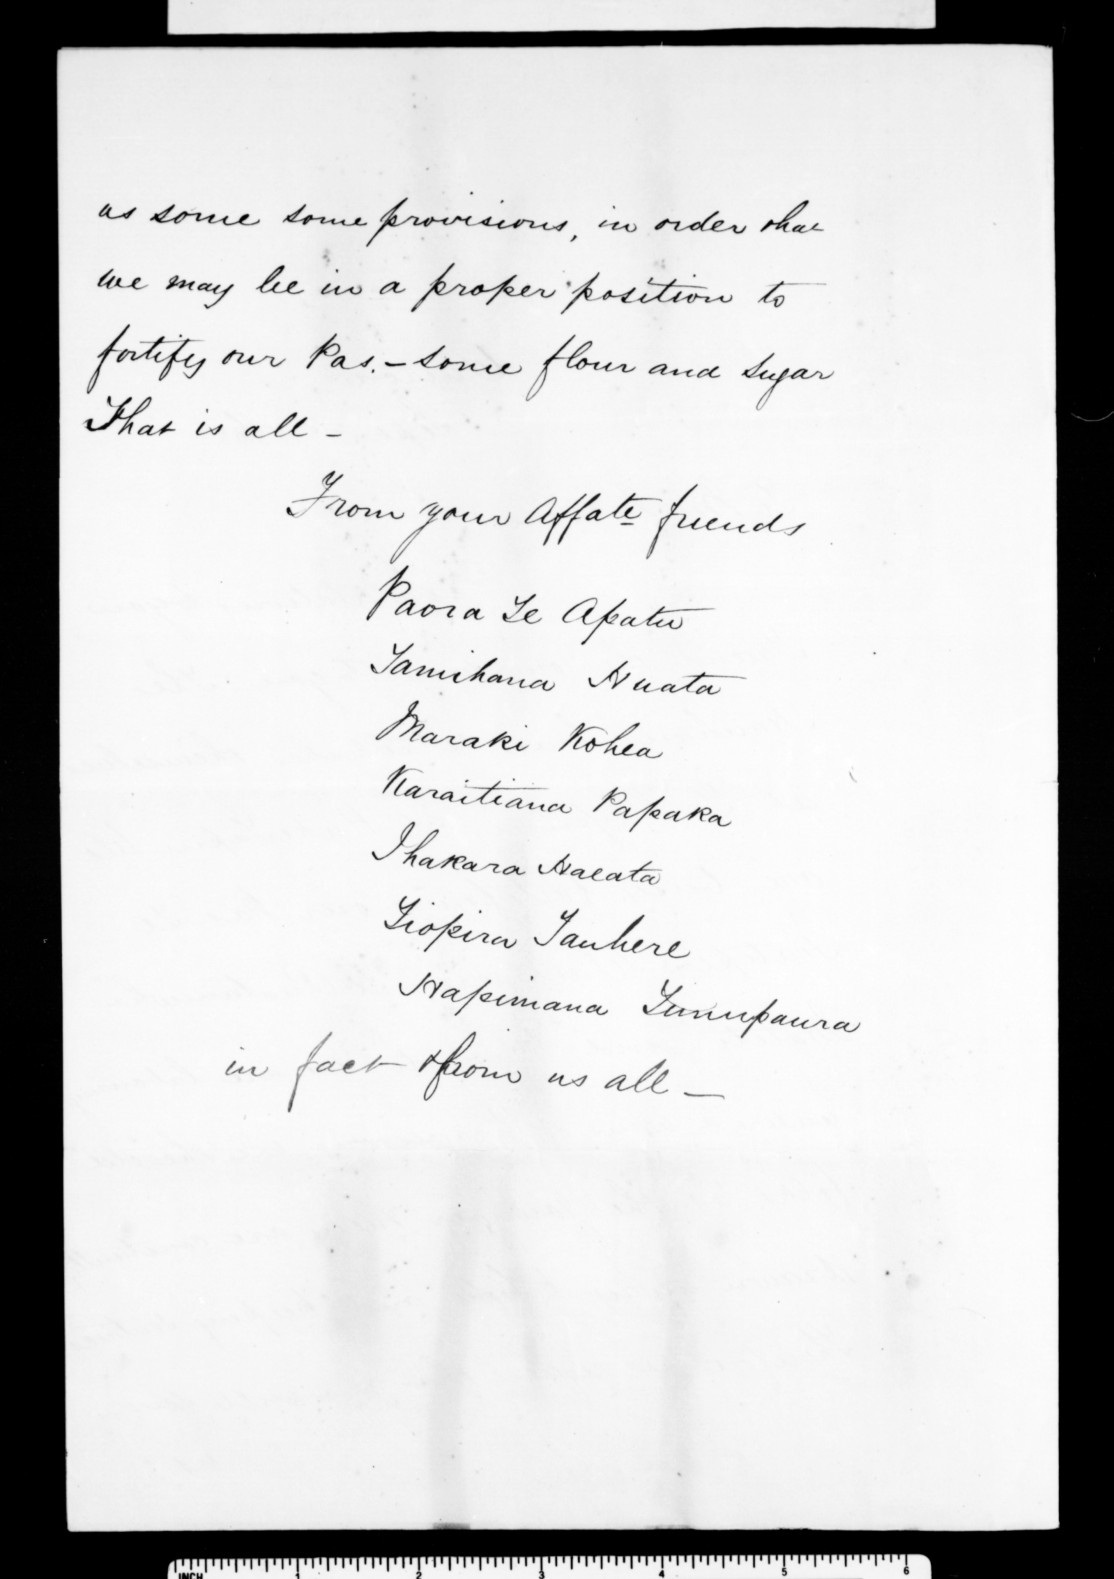 us some some provisions, in order that
we may be in a proper position to
fortify our Pas. - some flour and sugar
That is all -
From your Affate friends
Paora Te Apatu
Tamihana Huata
Maraki Kohea
Karaitiana Papaka
Ihakara Haeata
Tiopira Tauhere
Hapimana Tunupaura
in fact from us all -
INCH 1 2 3 4 5 6